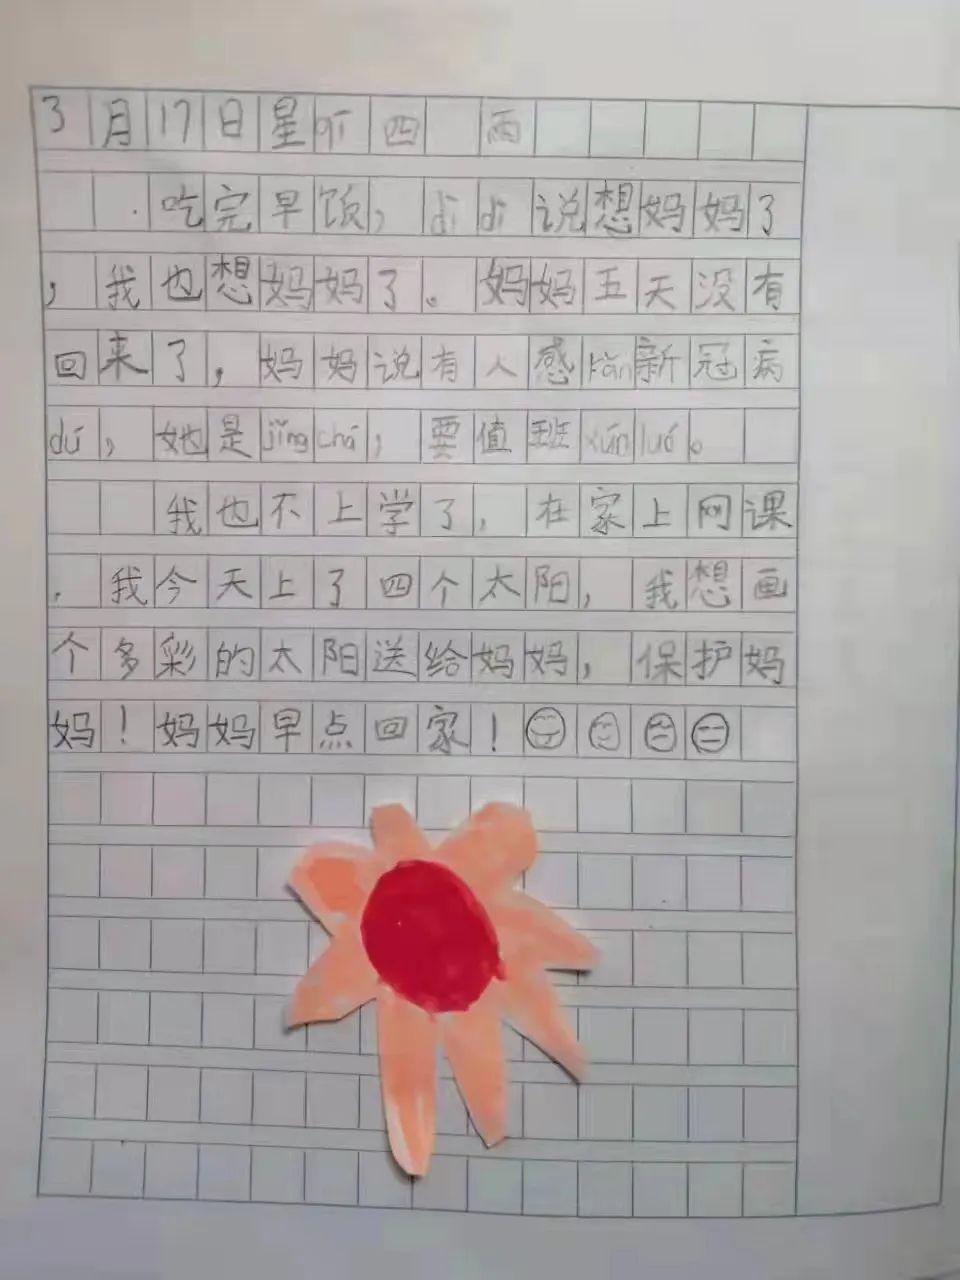 3月17日星qī四 雨
吃完早饭，dì di说想妈妈了
，我也想妈妈了。妈妈五天没有
回来了，妈妈说有人感rǎn新冠病
dú，她是jǐngchá，要值班xúnluó。
我也不上学了，在家上网课
，我今天上了四个太阳，我想画
个多彩的太阳送给妈妈，保护妈
妈！妈妈早点回家！